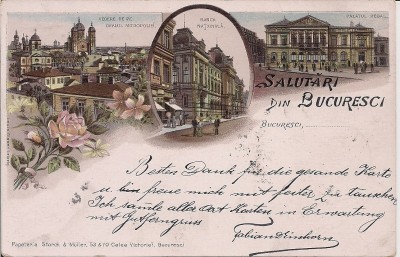 VEDERE DE PE
DÉALUL MITROPOLIEI
BANCA
NATIONALĂ
PALATUL REGAL
SALUTĂRI
DIN BUCURESCI
BUCURESCI,
Besten Dank für die gesande Karte
u bin freue mich mit ferter zu tauschen
Ich samle aller Art Karten in Erwartung
mit Gutferngruss
Fabian Einhorn
Papetăria Storck & Müller, 53 & 10 Calea Victoriei, Bucuresci